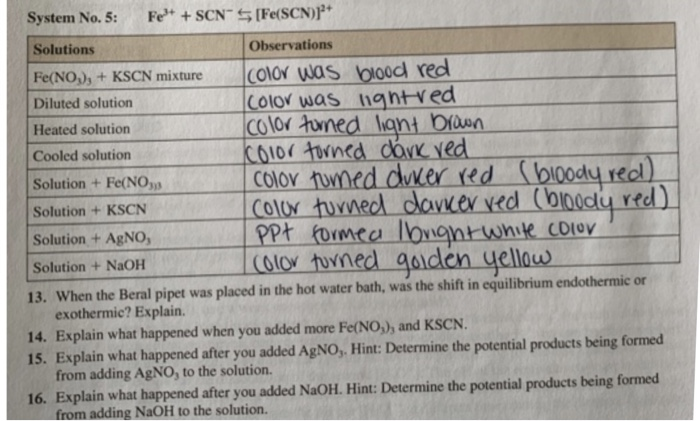 System No. 5: Fe³⁺ + SCN⁻ ⇆ [Fe(SCN)]²⁺
Solutions Observations
Fe(NO₃)₃ + KSCN mixture color was blood red
Diluted solution color was light red
Heated solution color turned light brown
Cooled solution color turned dark red
Solution + Fe(NO₃)₃ color turned darker red (bloody red)
Solution + KSCN color turned darker red (bloody red)
Solution + AgNO₃ PPt formed / bright white color
Solution + NaOH color turned golden yellow
13. When the Beral pipet was placed in the hot water bath, was the shift in equilibrium endothermic or
exothermic? Explain.
14. Explain what happened when you added more Fe(NO₃)₃ and KSCN.
15. Explain what happened after you added AgNO₃. Hint: Determine the potential products being formed
from adding AgNO₃ to the solution.
16. Explain what happened after you added NaOH. Hint: Determine the potential products being formed
from adding NaOH to the solution.